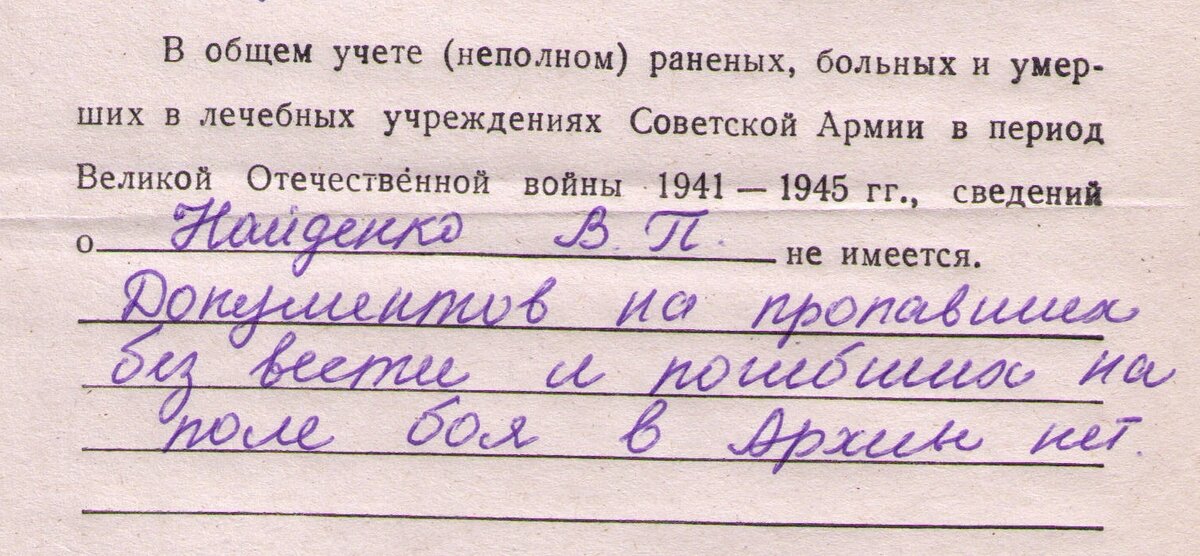 В общем учете (неполном) раненых, больных и умер-
ших в лечебных учреждениях Советской Армии в период
Великой Отечественной войны 1941 — 1945 гг., сведений
о Найденко В. П. не имеется.
Документов на пропавших
без вести и погибших на
поле боя в Архив нет.